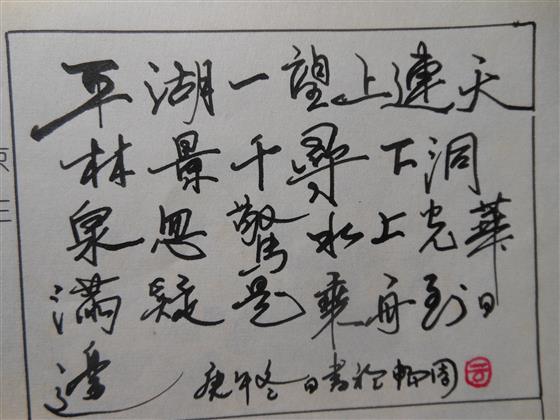 平湖一望上連天
林景千尋下洞
泉忽驚水上光華
滿疑是乘舟到日
邊 冬日書於